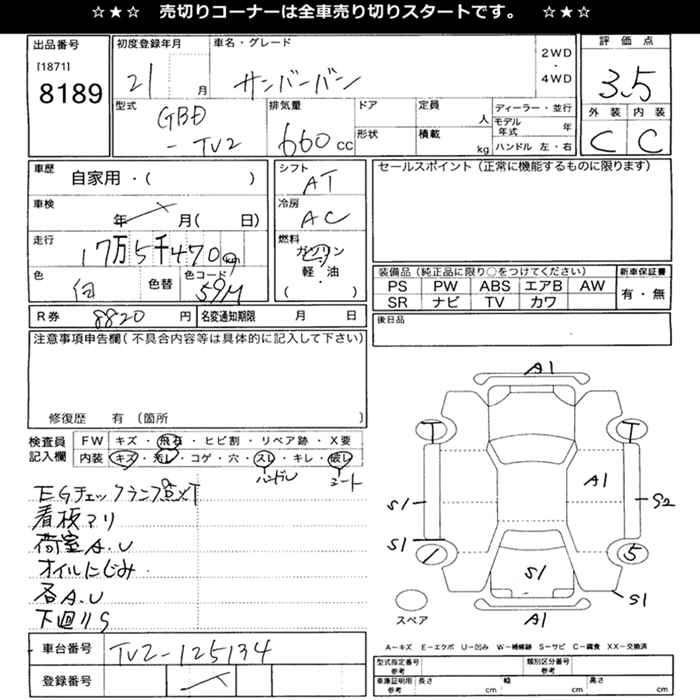 ☆★☆ 売切りコーナーは全車売り切りスタートです。 ☆★☆
出品番号
[1871]
8189
初度登録年月
21 月
車名・グレード
サンバーバン
2WD
・
4WD
評価点
3.5
外装 内装
C C
型式
GBD
-TV2
排気量
660 cc
ドア
形状
定員 人
積載 kg
ディーラー・並行
モデル年式 年
ハンドル 左・右
車歴
自家用・( )
車検
年 月( 日)
走行
17万5千470 km
色
白
色替
色コード
59M
シフト
AT
冷房
AC
燃料
ガソリン
・
軽・油
・
( )
セールスポイント(正常に機能するものに限ります)
装備品(純正品に限り○をつけてください)
PS PW ABS エアB AW
SR ナビ TV カワ
新車保証書
有・無
R券 8820 円
名変通知期限 月 日
後日品
注意事項申告欄(不具合内容等は具体的に記入して下さい)
修復歴 有 (箇所 )
検査員
記入欄
FW キズ・飛石・ヒビ割・リペア跡・X要
内装 キズ・汚レ・コゲ・穴・スレ・キレ・破レ
ハンドル シート
EGチェックランプ
看板アリ
荷室A.U
オイルにじみ
A.U
下廻りS
車台番号
TV2-125134
登録番号
A1
T T
A1
S1 S2
S1
1 5
S1
S1
スペア
A1
A-キズ E-エクボ U-凹み W-補修跡 S-サビ C-腐食 XX-交換済
型式指定番号
参考
類別区分番号
参考
車庫証明用
参考
長さ cm
幅 cm
高さ cm